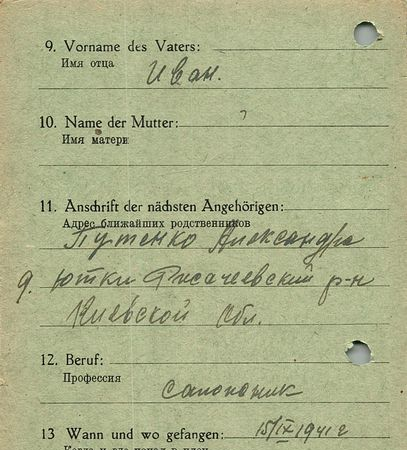 9. Vorname des Vaters:
Имя отца
Иван.
10. Name der Mutter:
Имя матери
?
11. Anschrift der nächsten Angehörigen:
Адрес ближайших родственников
Путенко Александра
д. Ютки р-н
Киевской обл.
12. Beruf:
Профессия
13 Wann und wo gefangen: 15/IX 1941 г